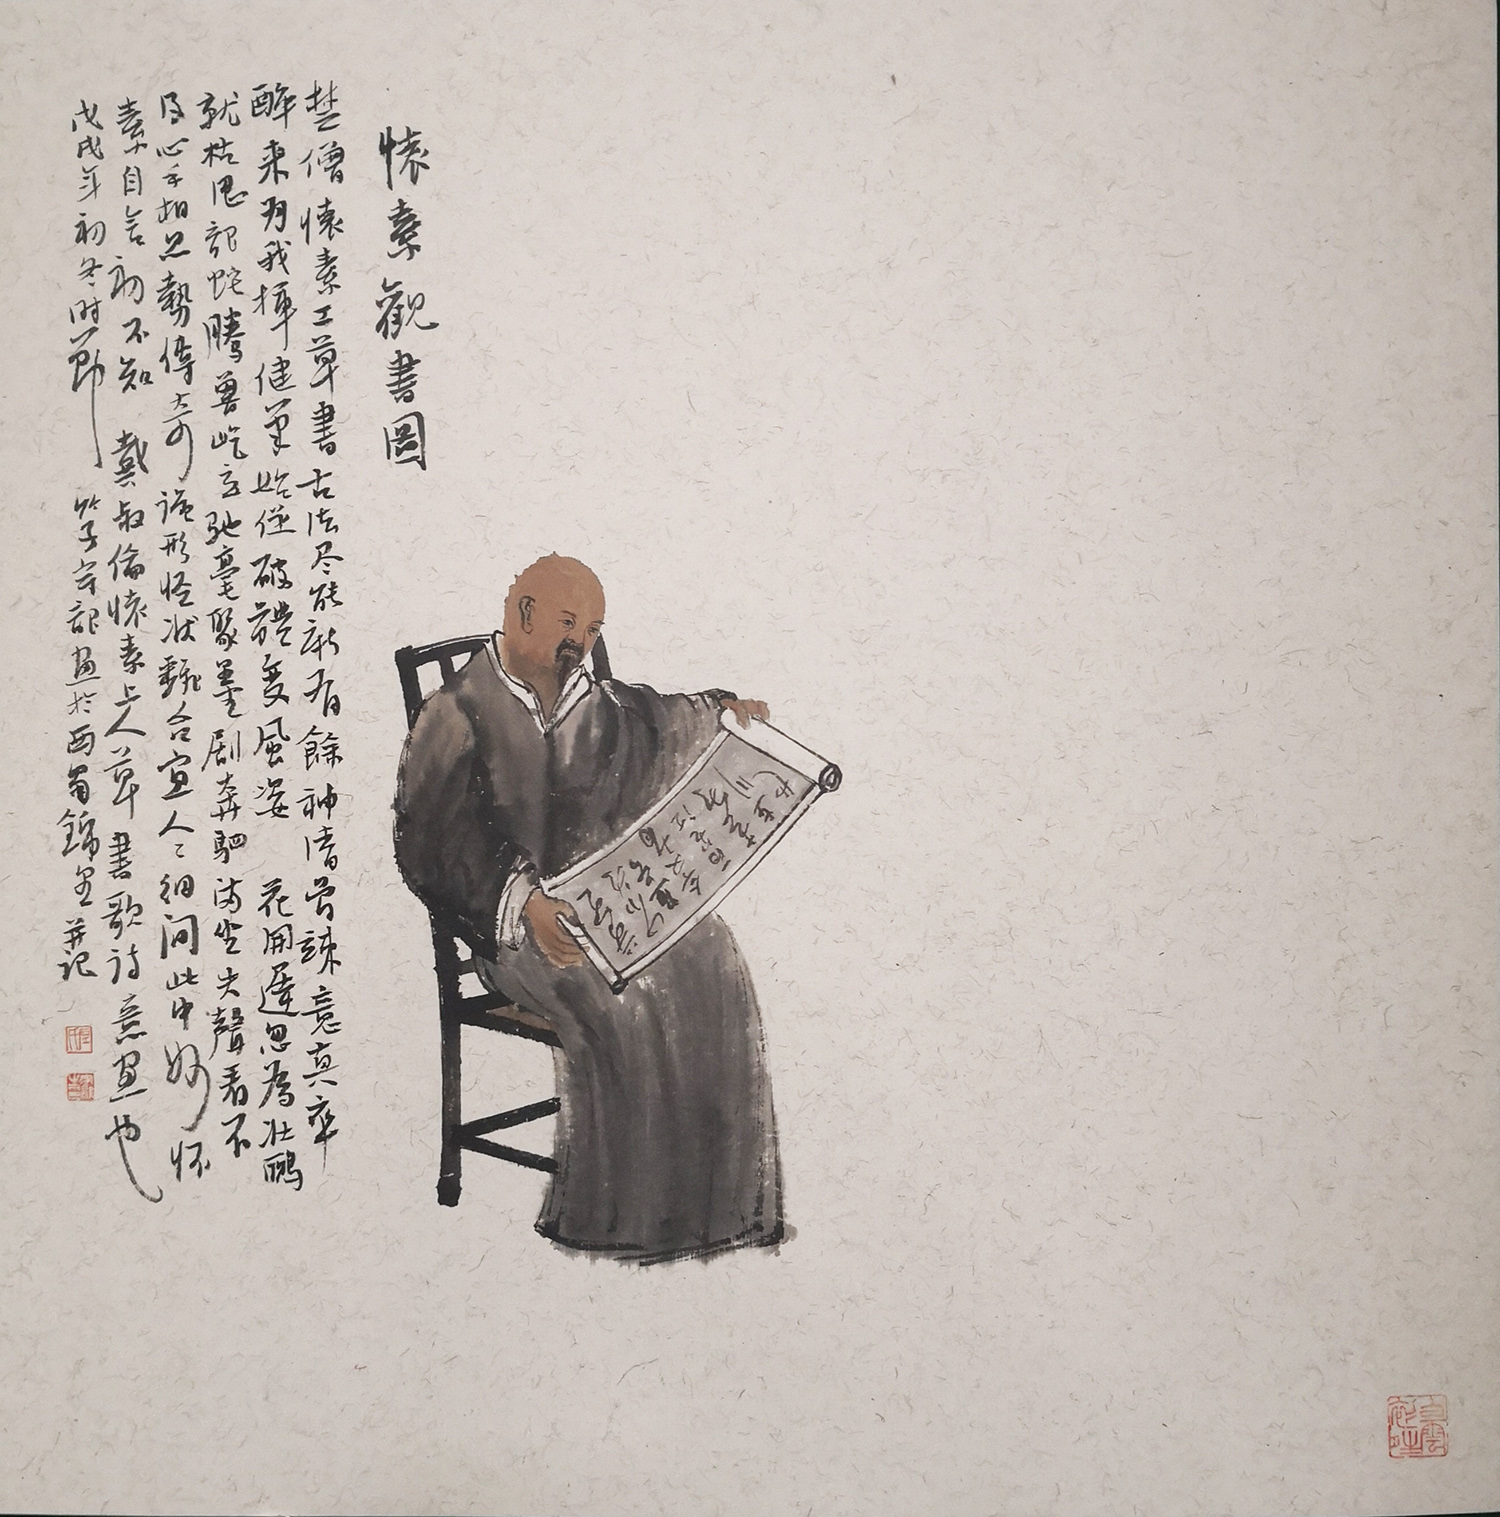 懷素觀書圖
楚僧懷素工草書古法尽能新有餘神清骨竦意真率
醉来為我揮健筆始從破體變風姿 花開遲忽為壯鹂
就枯思龍蛇騰獸屹立馳毫聚墨劇奔駟满坐失聲看不
及心手相思勢傳奇詭形怪状翻合宜人〻細问此中妙怀
素自言初不知 戴叔倫懷素上人草書歌詩意畫也
戊戌年初冬时節 龍画於西蜀錦里并记